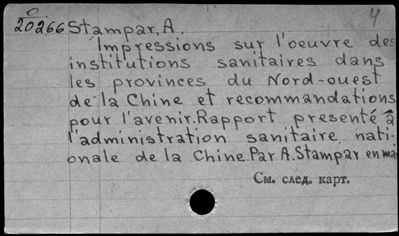 C 4
20266 Stampar, A.
Impressions sur l'oeuvre des
institutions sanitaires dans
les provinces du Nord-ouest
de la Chine et recommandations
pour l'avenir. Rapport presenté à
l'administration sanitaire nati-
onale de la Chine. Par A. Stampar en mai
См. след. карт.